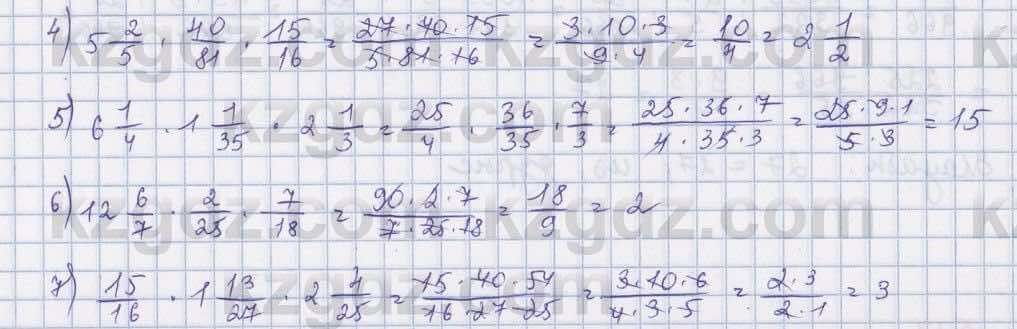 4) 5 2/5 · 40/81 · 15/16 = 27·40·15/5·81·16 = 3·10·3/9·4 = 10/4 = 2 1/2
5) 6 1/4 · 1 1/35 · 2 1/3 = 25/4 · 36/35 · 7/3 = 25·36·7/4·35·3 = 25·9·1/5·3 = 15
6) 12 6/7 · 2/25 · 7/18 = 90·2·7/7·25·18 = 18/9 = 2
7) 15/16 · 1 13/27 · 2 4/25 = 15·40·54/16·27·25 = 3·10·6/4·3·5 = 2·3/2·1 = 3
kzgdz.com